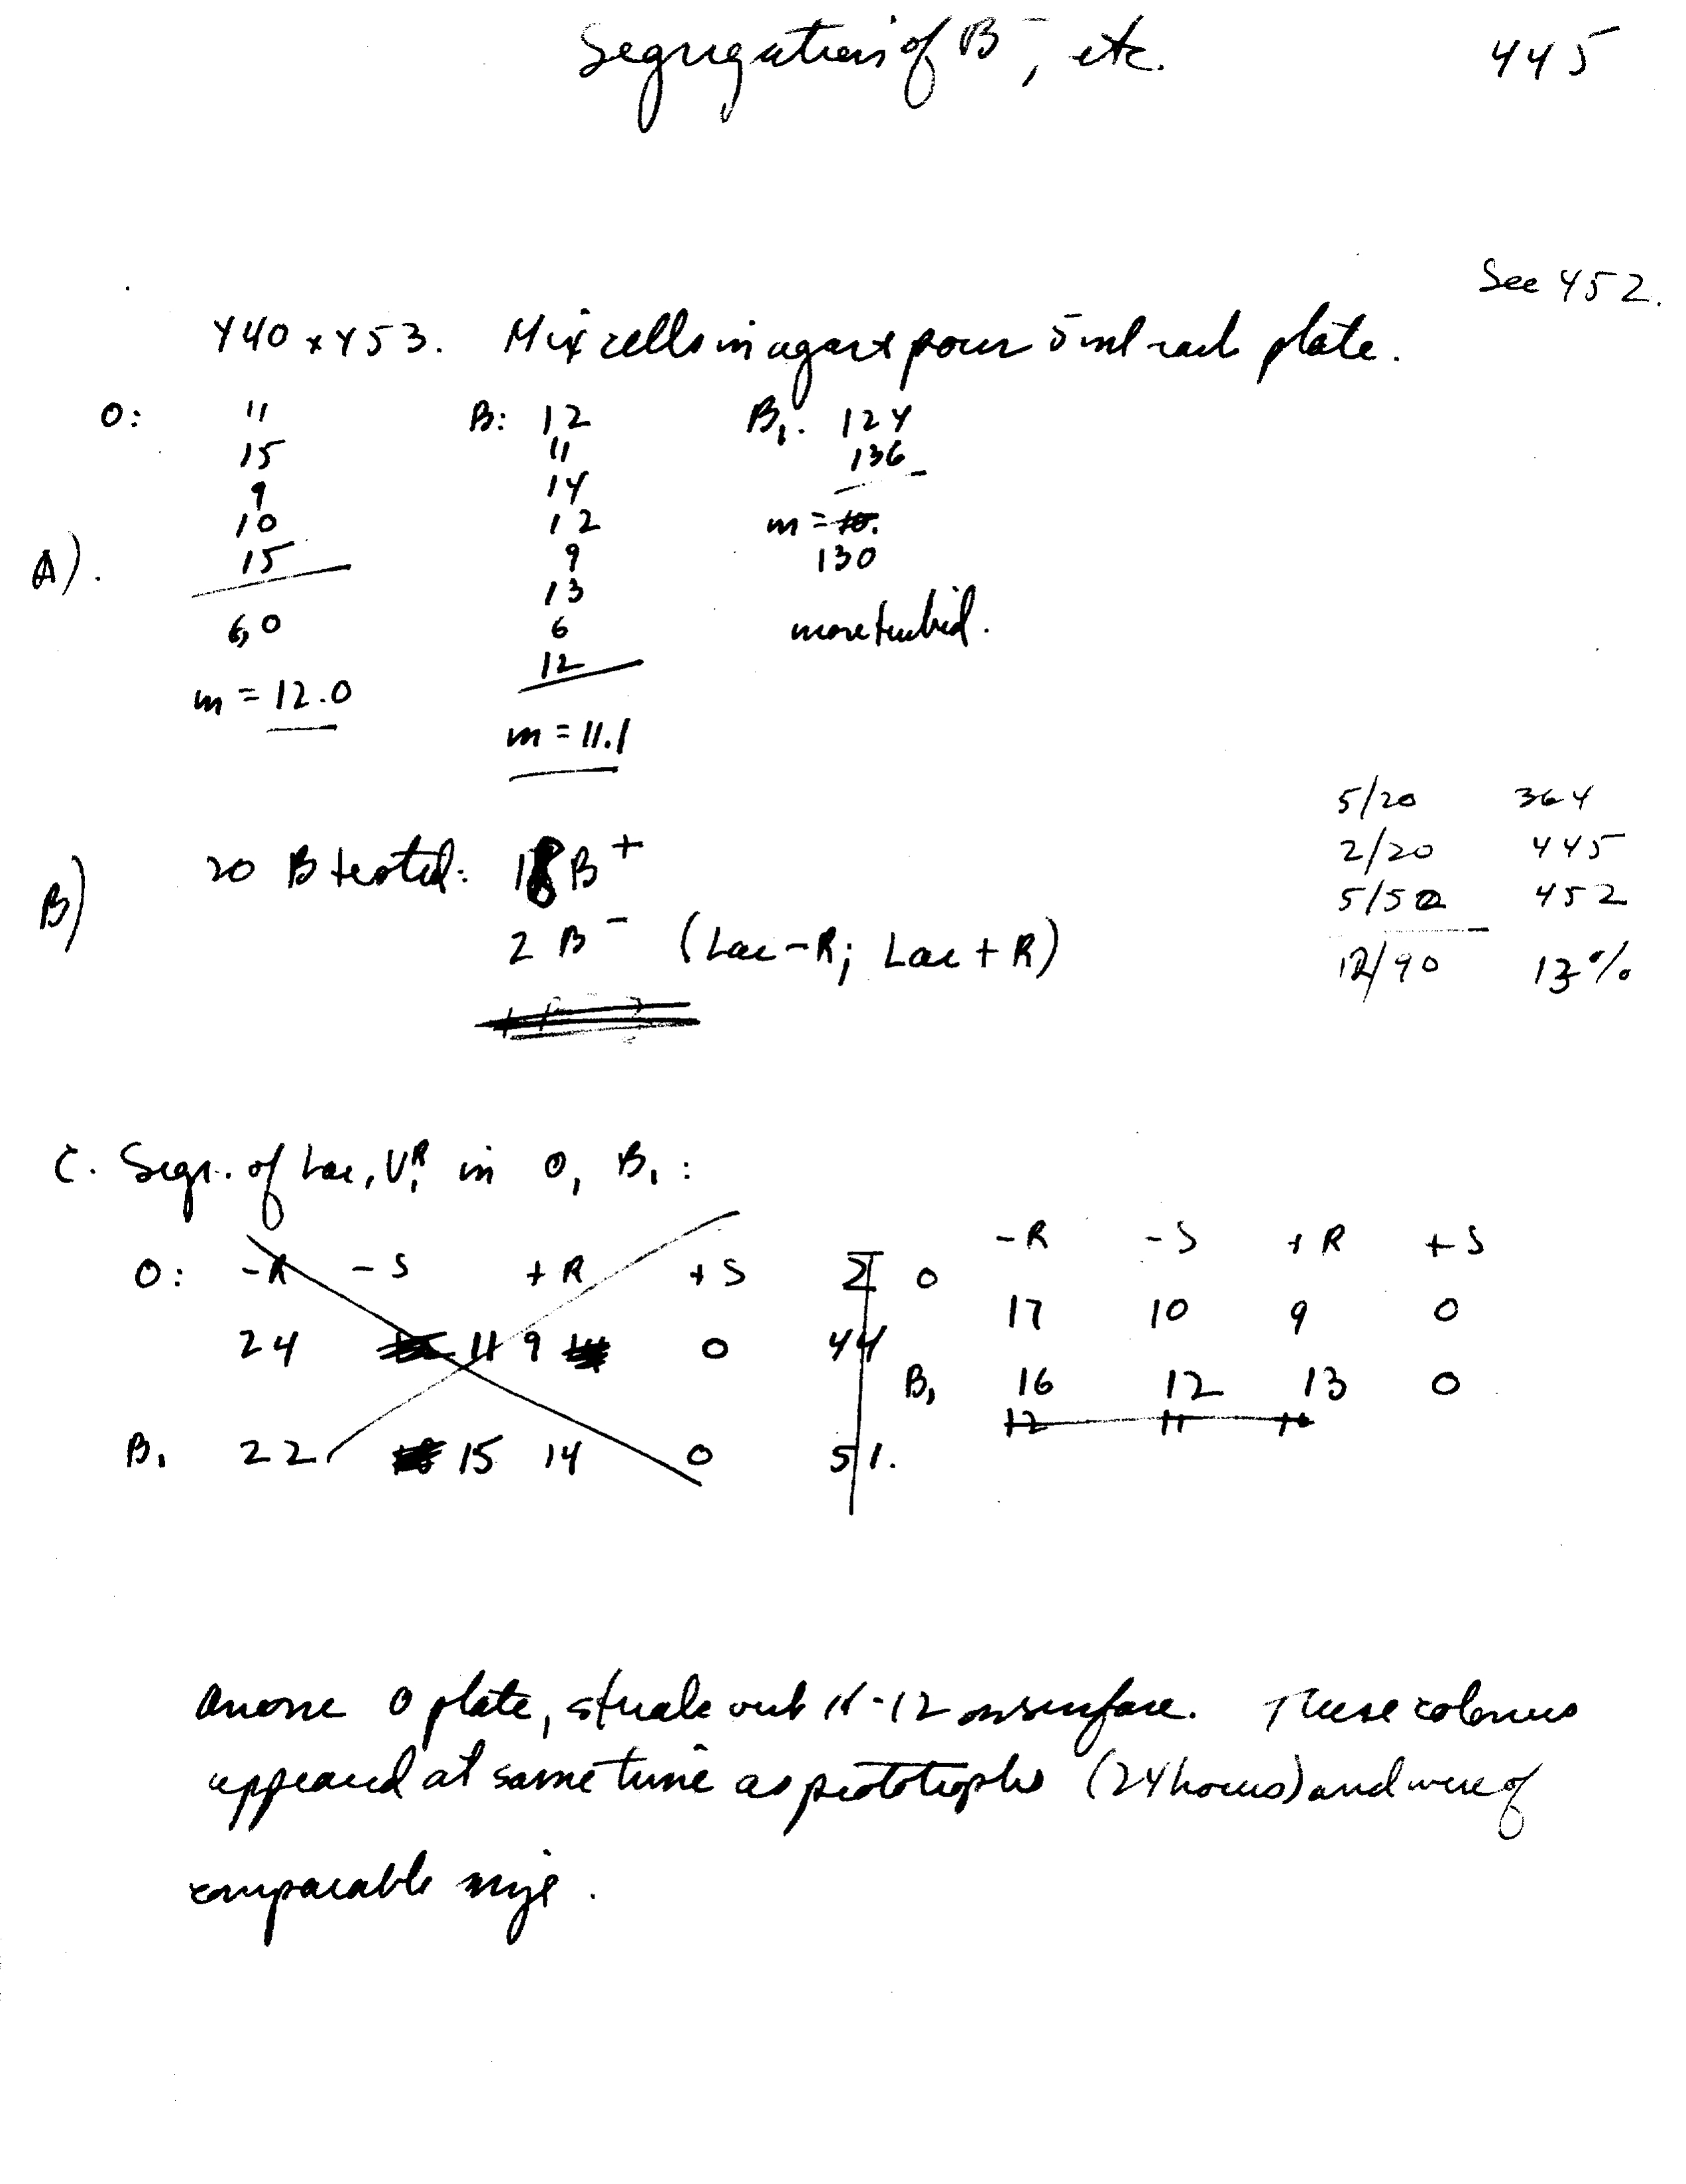 Segregation of B⁻, etc. 445
See 452.
Y40 x Y53. Mix cells in agar & pour 5 ml each plate.
O: 11 B: 12 B₁: 124
15 11 136
9 14 m = 10.
10 12 130
A). 15 9 more turbid.
60 13
m = 12.0 6
12
m = 11.1
5/20 364
2/20 445
5/50 452
12/90 13%
B) 20 B tested: 18 B⁺
2 B⁻ (Lac-R; Lac+R)
C. Segr. of Lac, V₁ᴿ in O, B₁:
O: -R -S +R +S Σ
24 11 9 0 44
B₁ 22 15 14 0 51.
-R -S +R +S
O 17 10 9 0
B₁ 16 12 13 0
12 11 10
On one O plate, streak out K-12 on surface. These colonies
appeared at same time as prototrophs (24 hours) and were of
comparable size.